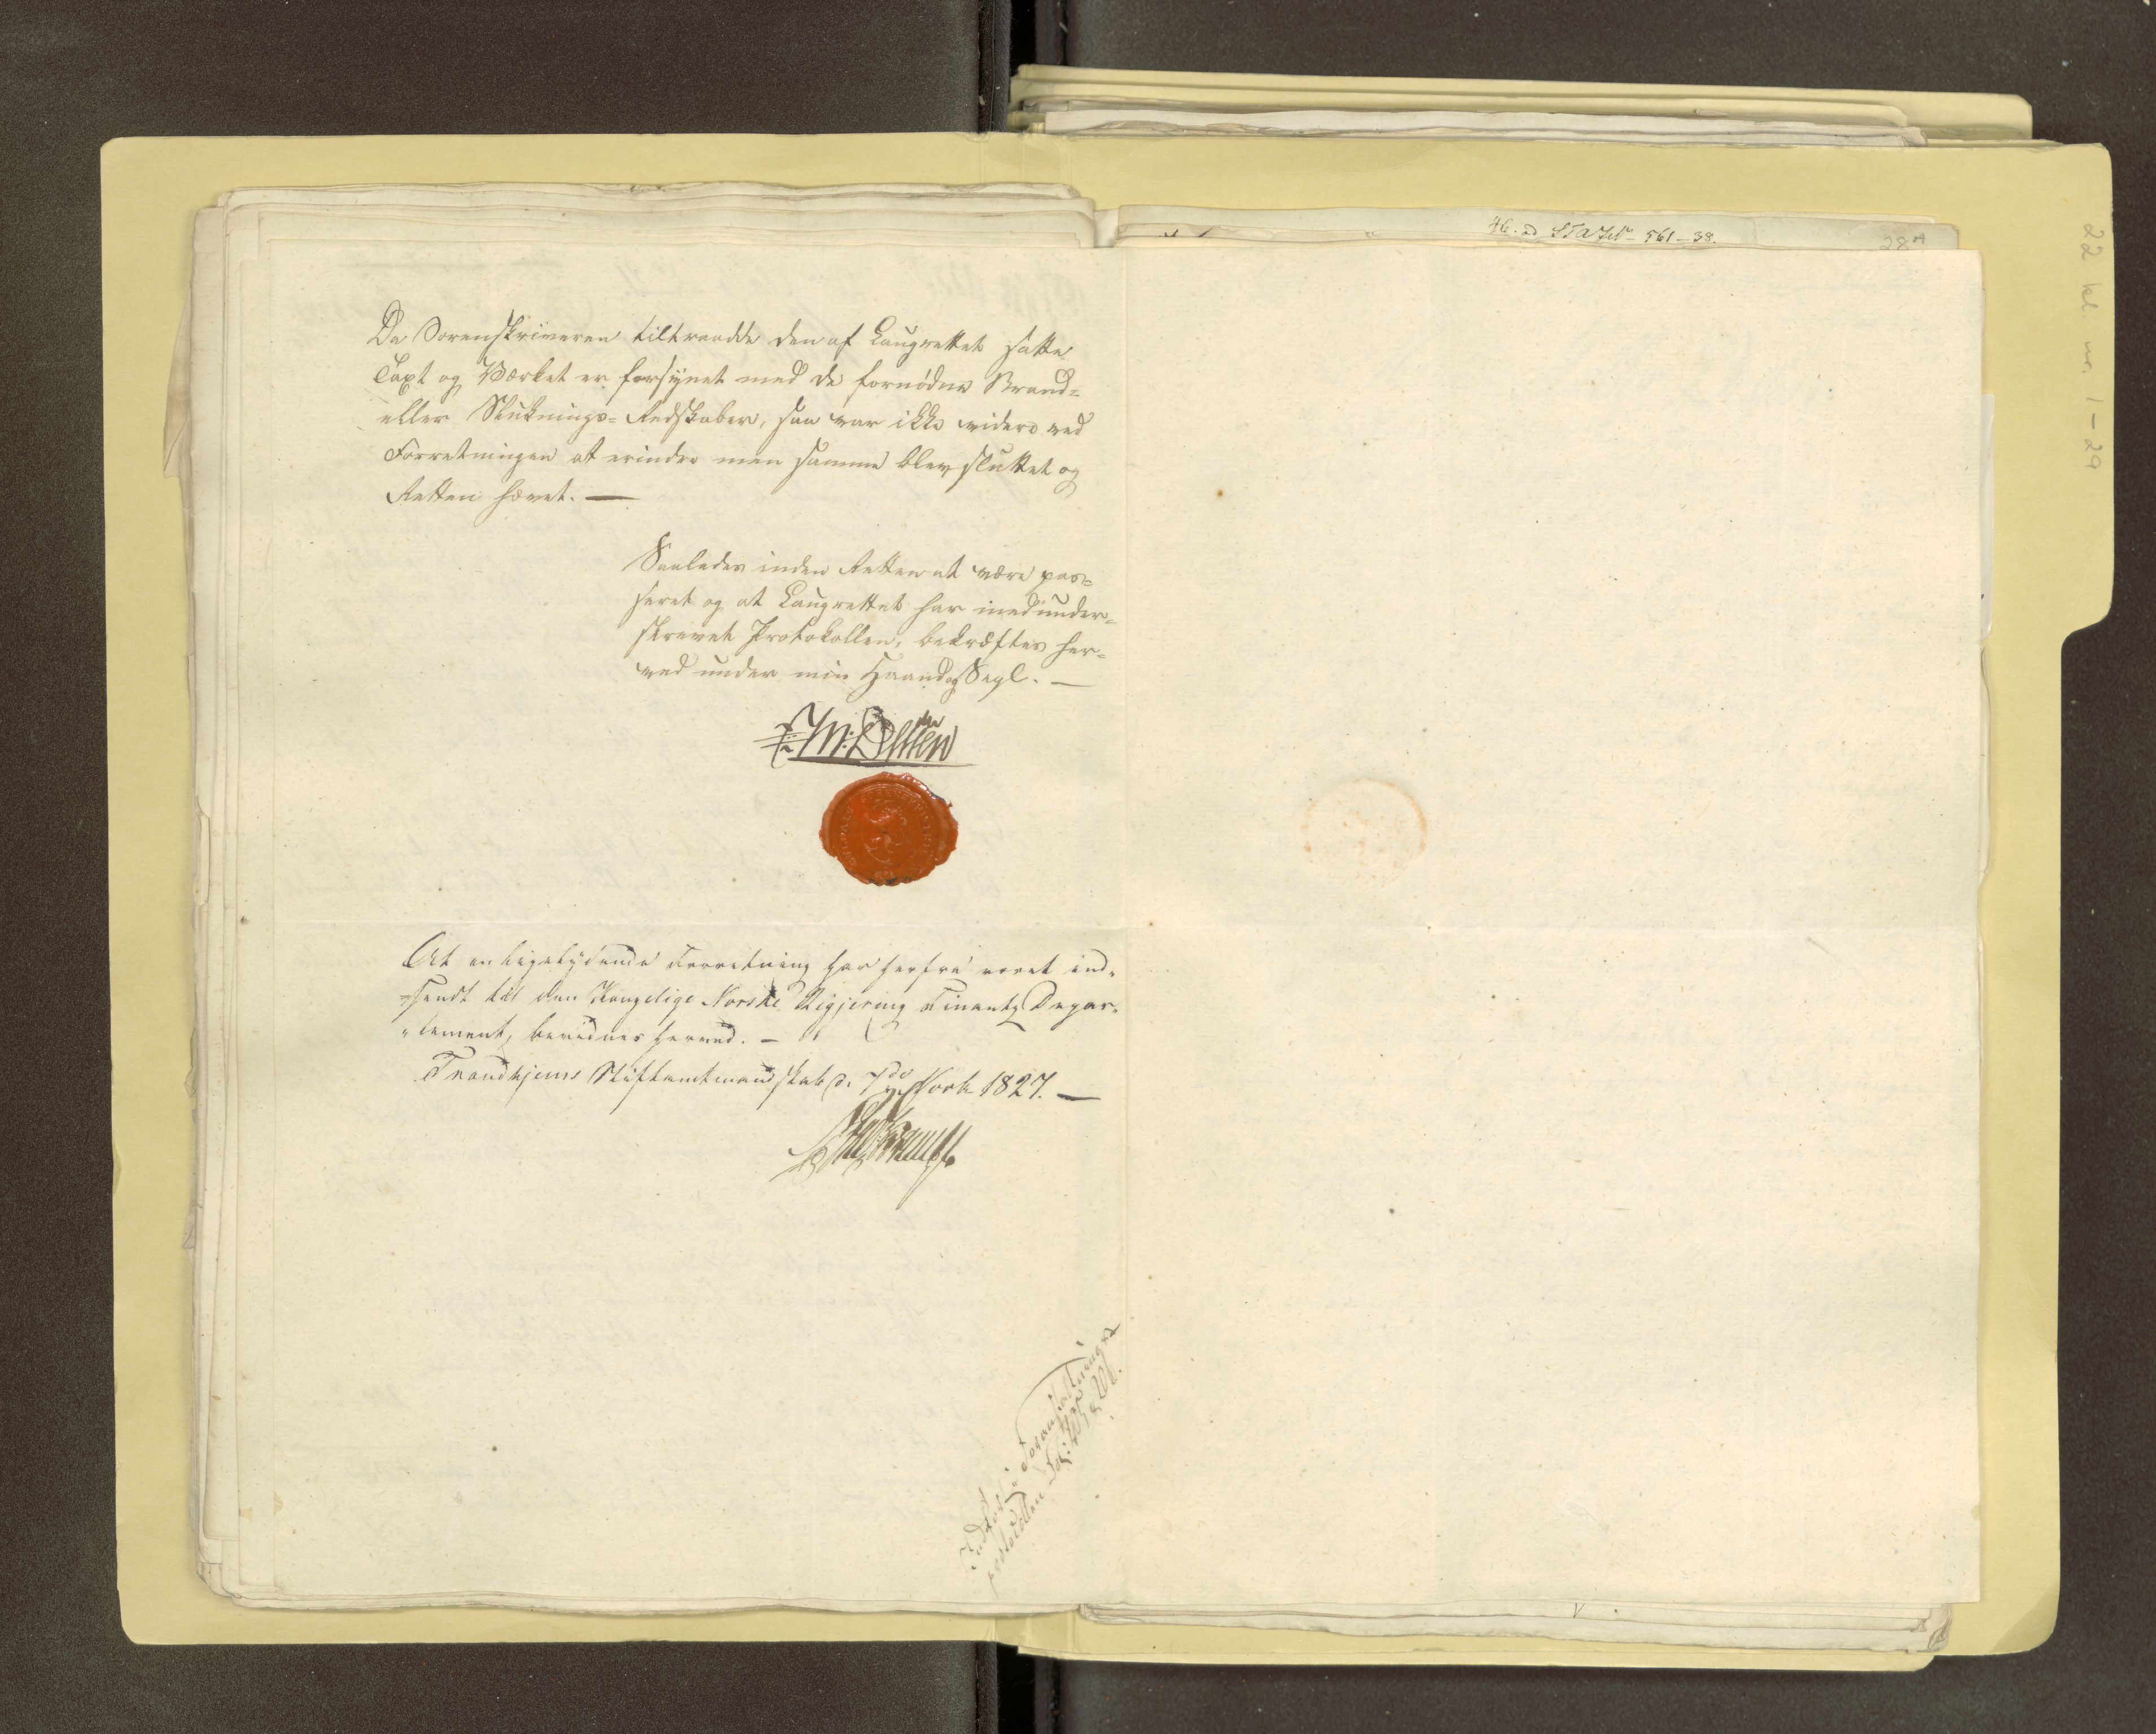 46. ad 561–38.
28 A
22 kl nr. 1–29
Da Sorenskriveren tiltraadte den af Laugrettet satte
Taxt og Værket er forsÿnet med de fornödne Brand=
eller Sluknings-Redskaber, saa var ikke videre ved
Forretningen at erindre men samme blev sluttet og
Retten hævet. —
Saaledes inden Retten at være pas=
seret og at Laugrettet har medunder=
skrevet Protokollen, bekræftes her=
ved under min Haand og Segl. —
At en ligelÿdende Forretning har herfra været ind-
-sendt til den Kongelige Norske Regjering Finantz Depar-
"tement, bevidnes herved. —
Trondhjems Stiftamtmandskab d. 7de Novbr 1827. —
Indført i Forantstaltnings
protocollen Fol: 201.